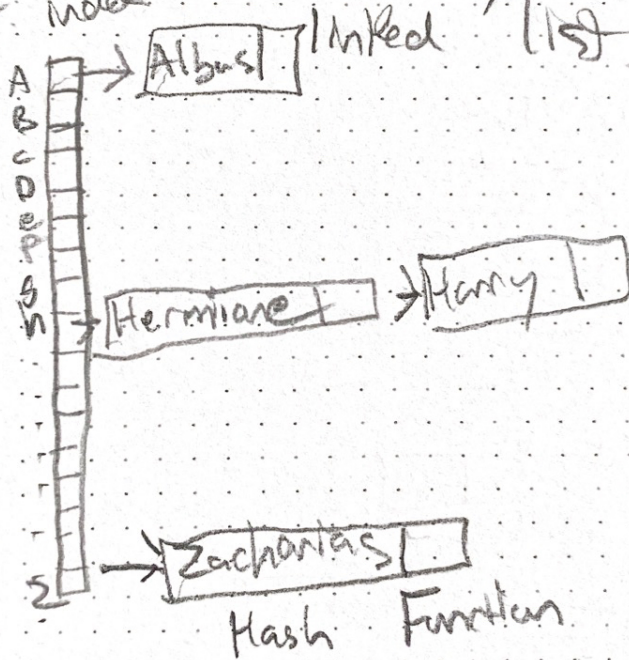 Albus linked list
A
B
C
D
e
F
g
h Hermione Harry
Z Zacharias
Hash Function